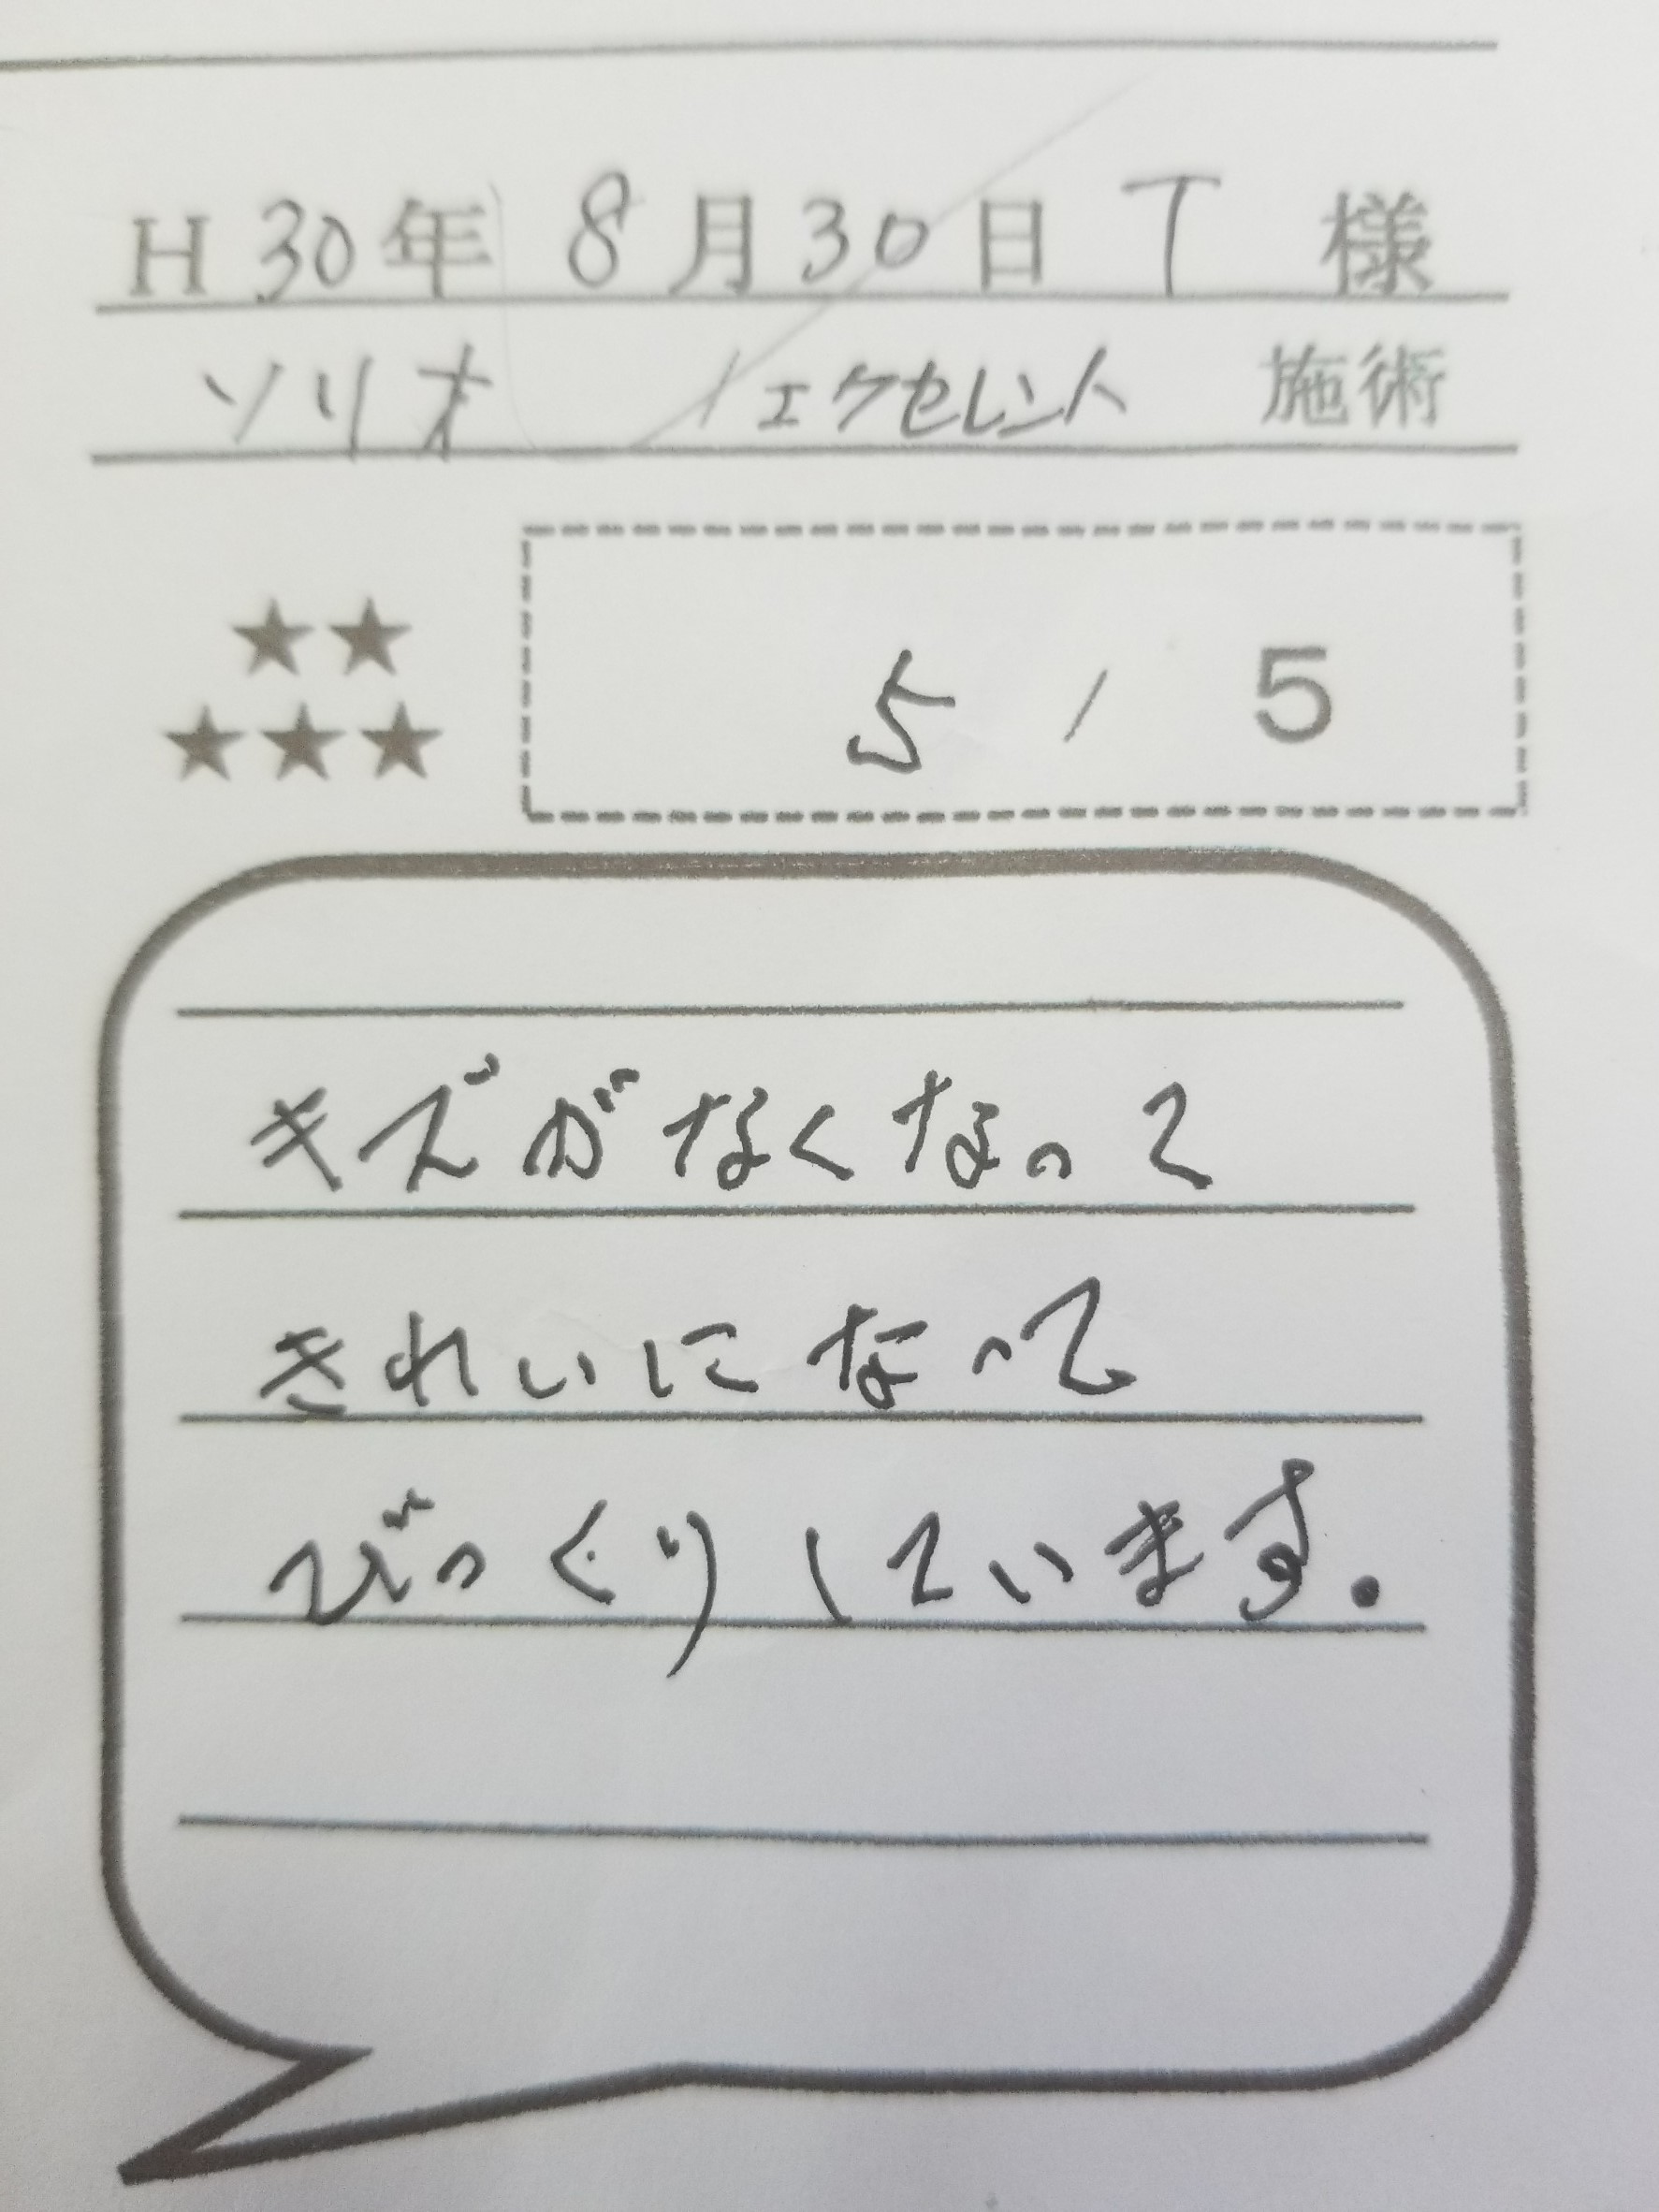 H 30年 8月30日 T 様
ソリオ / エクセレント 施術
★★
★★★
5 / 5
キズがなくなって
きれいになって
びっくりしています.